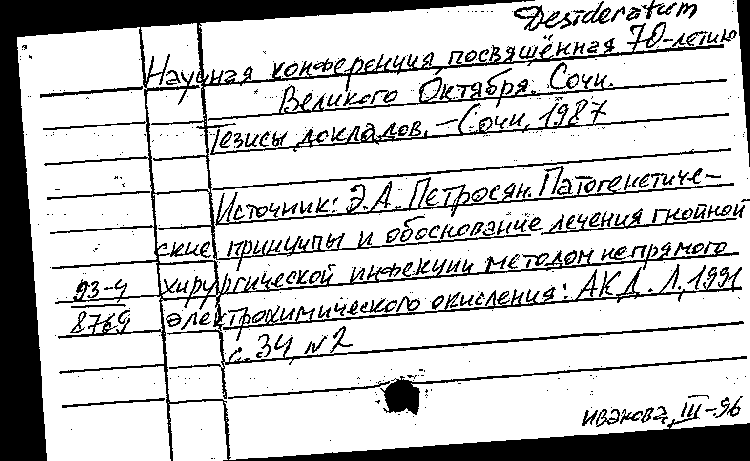 Desideratum
Научная конференция, посвящённая 70-летию
Великого Октября. Сочи.
Тезисы докладов. – Сочи, 1987
Источник: Э.А. Петросян. Патогенетиче-
ские принципы и обоснование лечения гнойной
93-4 хирургической инфекции методом непрямого
8769 электрохимического окисления: АКД. Л., 1991
с. 34, N2
Иванова, III-96